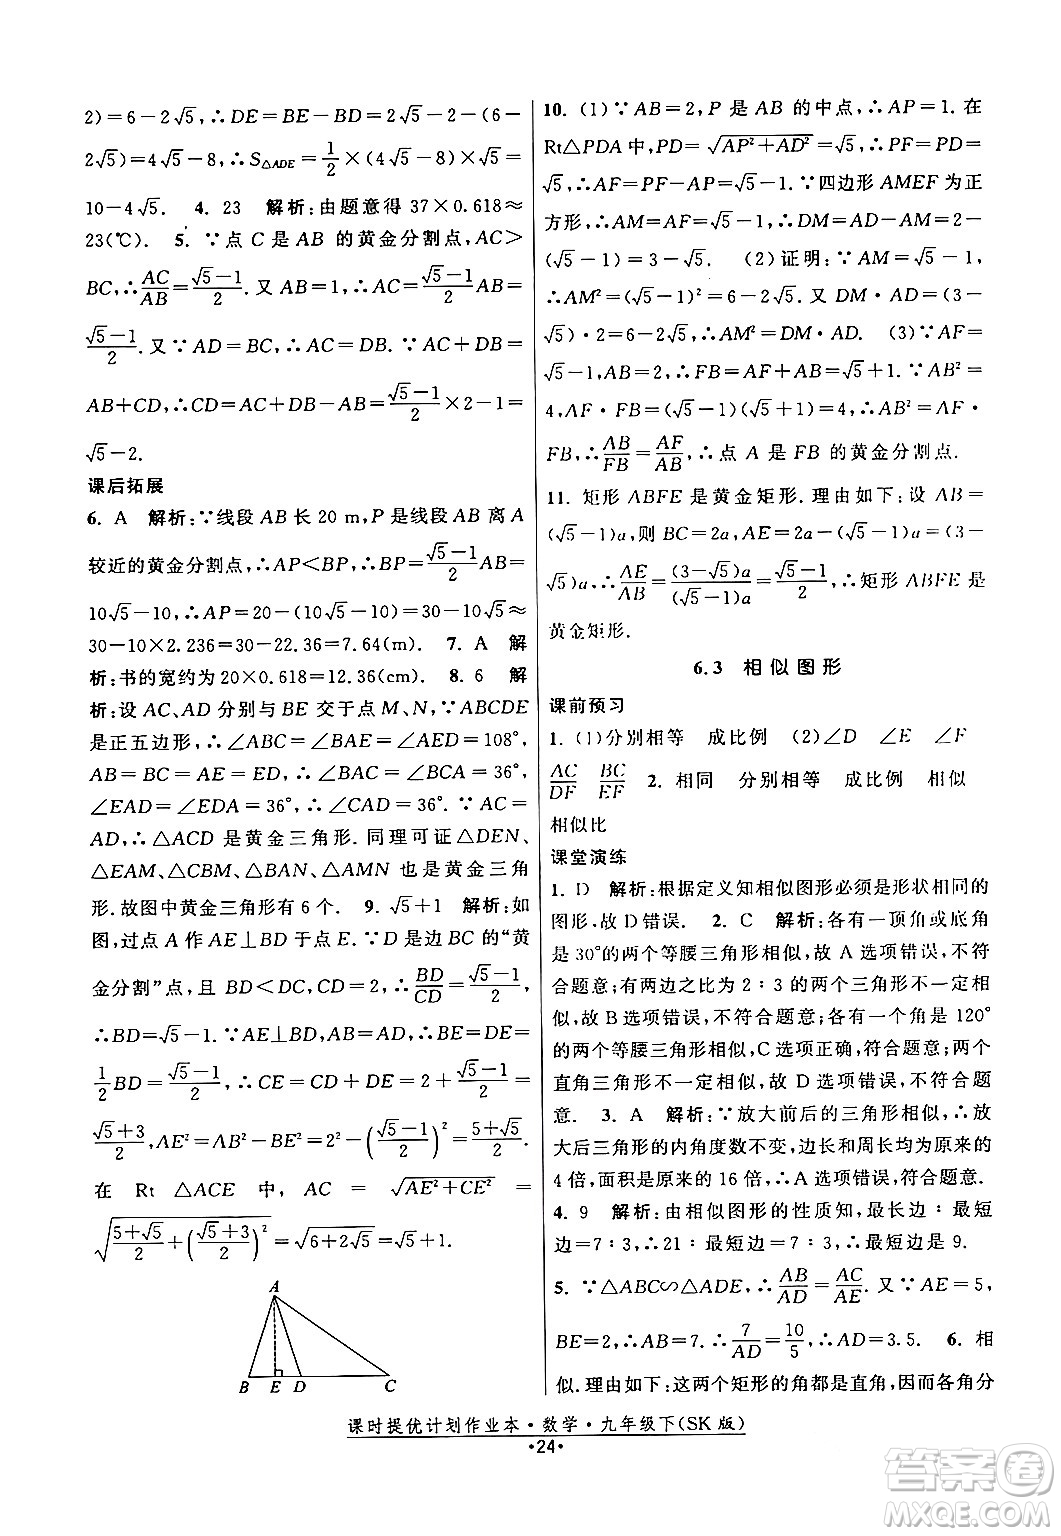 2)=6-2√5,∴DE=BE-BD=2√5-2-(6-
2√5)=4√5-8,∴S△ADE=1/2×(4√5-8)×√5=
10-4√5. 4. 23 解析:由题意得 37×0.618≈
23(℃). 5. ∵点 C 是 AB 的黄金分割点,AC>
BC,∴AC/AB=(√5-1)/2.又 AB=1,∴AC=(√5-1)/2AB=
(√5-1)/2.又∵AD=BC,∴AC=DB.∵AC+DB=
AB+CD,∴CD=AC+DB-AB=(√5-1)/2×2-1=
√5-2.
课后拓展
6. A 解析:∵线段 AB 长 20 m,P 是线段 AB 离 A
较近的黄金分割点,∴AP<BP,∴BP=(√5-1)/2AB=
10√5-10,∴AP=20-(10√5-10)=30-10√5≈
30-10×2.236=30-22.36=7.64(m). 7. A 解
析:书的宽约为 20×0.618=12.36(cm). 8. 6 解
析:设 AC、AD 分别与 BE 交于点 M、N,∵ABCDE
是正五边形,∴∠ABC=∠BAE=∠AED=108°,
AB=BC=AE=ED,∴∠BAC=∠ABE=36°,
∠EAD=∠EDA=36°,∴∠CAD=36°.∵AC=
AD,∴△ACD 是黄金三角形.同理可证△DEN、
△EAM、△CBM、△BAN、△AMN 也是黄金三角
形.故图中黄金三角形有 6 个. 9. √5+1 解析:如
图,过点 A 作 AE⊥BD 于点 E.∵D 是边 BC 的“黄
金分割”点,且 BD<DC,CD=2,∴BD/CD=(√5-1)/2,
∴BD=√5-1.∵AE⊥BD,AB=AD,∴BE=DE=
1/2BD=(√5-1)/2,∴CE=CD+DE=2+(√5-1)/2=
(√5+3)/2,AE²=AB²-BE²=2²-((√5-1)/2)²=(5+√5)/2.
在 Rt△ACE 中, AC=√(AE²+CE²)=
√((5+√5)/2+((√5+3)/2)²)=√(6+2√5)=√5+1.
A
B E D C
10. (1)∵AB=2,P 是 AB 的中点,∴AP=1.在
Rt△PDA 中,PD=√(AP²+AD²)=√5,∴PF=PD=
√5,∴AF=PF-AP=√5-1.∵四边形 AMEF 为正
方形,∴AM=AF=√5-1,∴DM=AD-AM=2-
(√5-1)=3-√5. (2)证明:∵AM=√5-1,
∴AM²=(√5-1)²=6-2√5.又 DM·AD=(3-
√5)·2=6-2√5,∴AM²=DM·AD. (3)∵AF=
√5-1,AB=2,∴FB=AF+AB=√5+1.∵AB²=
4,AF·FB=(√5-1)(√5+1)=4,∴AB²=AF·
FB,∴AB/FB=AF/AB,∴点 A 是 FB 的黄金分割点.
11. 矩形 ABFE 是黄金矩形.理由如下:设 AB=
(√5-1)a,则 BC=2a,AE=2a-(√5-1)a=(3-
√5)a,∴AE/AB=(3-√5)a/(√5-1)a=(√5-1)/2,∴矩形 ABFE 是
黄金矩形.
6.3 相似图形
课前预习
1. (1)分别相等 成比例 (2)∠D ∠E ∠F
AC/DF BC/EF 2. 相同 分别相等 成比例 相似
相似比
课堂演练
1. D 解析:根据定义知相似图形必须是形状相同的
图形,故 D 错误. 2. C 解析:各有一顶角或底角
是 30°的两个等腰三角形相似,故 A 选项错误,不符
合题意;有两边之比为 2∶3 的两个三角形不一定相
似,故 B 选项错误,不符合题意;各有一个角是 120°
的两个等腰三角形相似,C 选项正确,符合题意;两个
直角三角形不一定相似,故 D 选项错误,不符合题
意. 3. A 解析:∵放大前后的三角形相似,∴放
大后三角形的内角度数不变,边长和周长均为原来的
4 倍,面积是原来的 16 倍,∴A 选项错误,符合题意.
4. 9 解析:由相似图形的性质知,最长边∶最短
边=7∶3,∴21∶最短边=7∶3,∴最短边是 9.
5. ∵△ABC∽△ADE,∴AB/AD=AC/AE.又∵AE=5,
BE=2,∴AB=7.∴7/AD=10/5,∴AD=3.5. 6. 相
似.理由如下:∵这两个矩形的角都是直角,∴各角分
课时提优计划作业本·数学·九年级下(SK 版)
·24·
答案圈
MXQE.COM